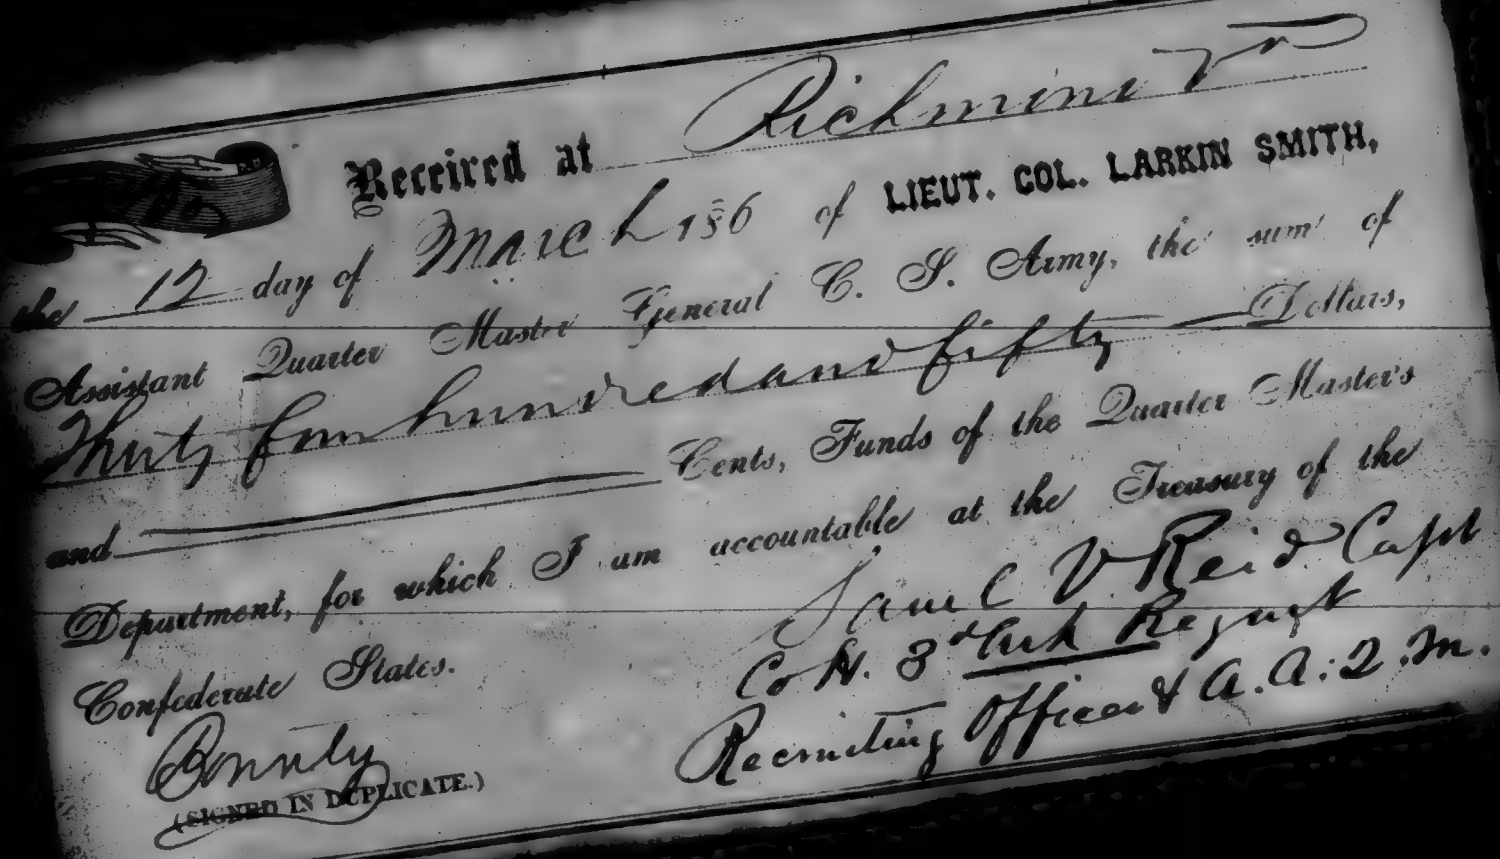 Received at Richmond Va
the 12 day of March 186 of LIEUT. COL. LARKIN SMITH,
Assistant Quarter Master General C. S. Army, the sum of
Thirty four hundred and fifty Dollars,
and Cents, Funds of the Quarter Master's
Department, for which I am accountable at the Treasury of the
Confederate States.
Saml V. Reid Capt
Co H. 3rd Ark Regmt
Recruiting Officer & A.A.Q.M.
Bounty
(SIGNED IN DUPLICATE.)